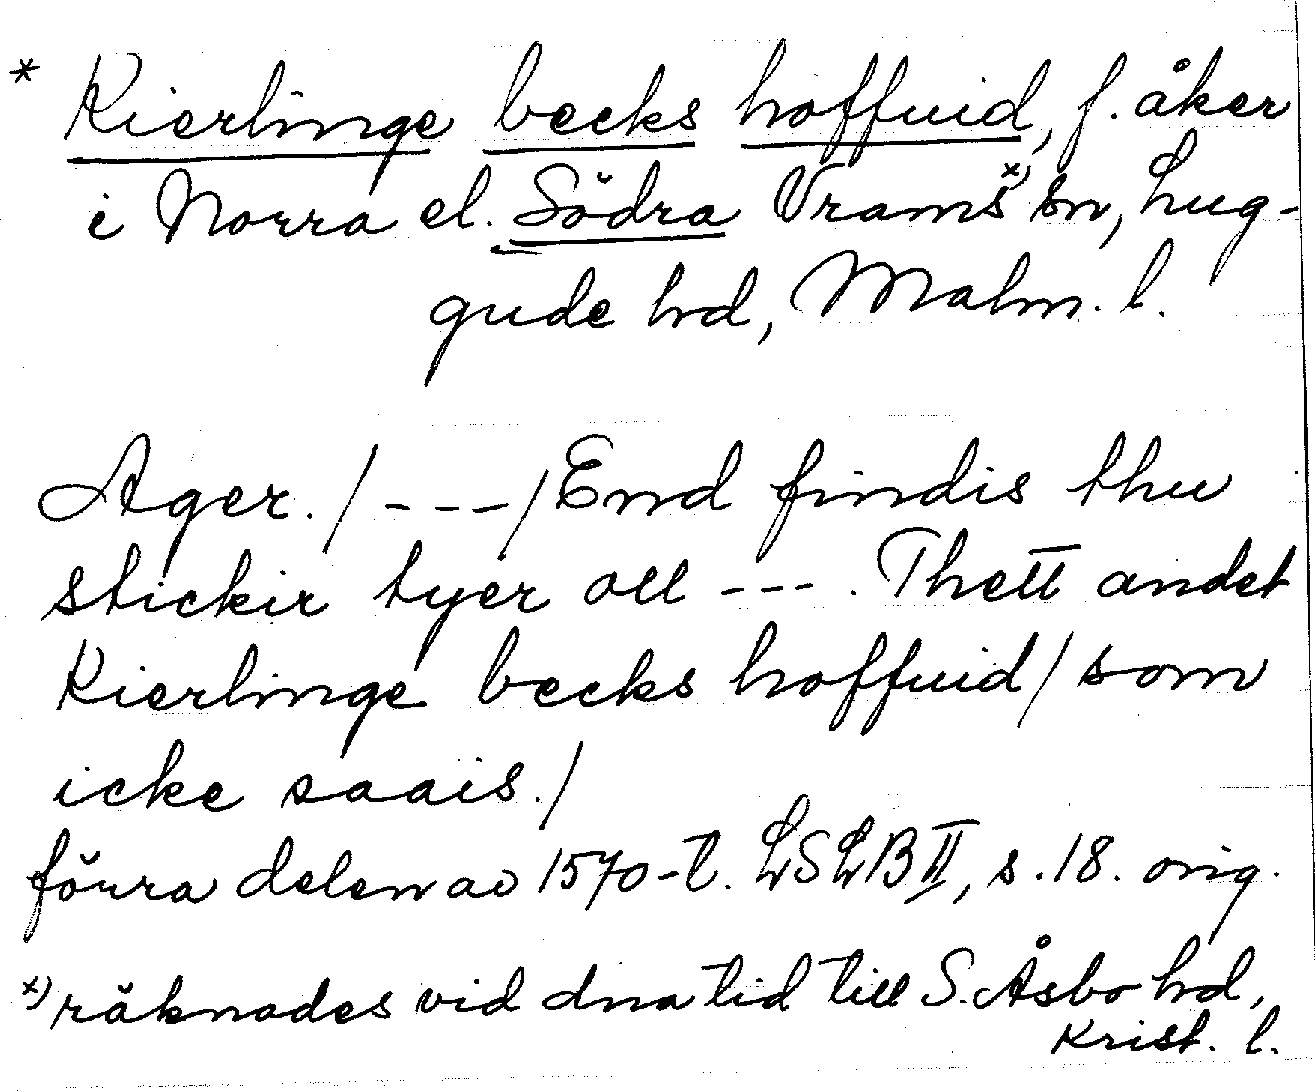 * Kierlinge becks hoffuid, f. åker
i Norra el. Södra Vrams x) sn, Lug-
gude hd, Malm. l.
Ager. / - - - / End findis thu
stickir tyer oll - - - . Thett andet
Kierlinge becks hoffuid / som
icke saais. /
förra delen av 1570-t. LSLB II, s. 18. orig.
x) räknades vid dna tid till S. Åsbo hd,
Krist. l.